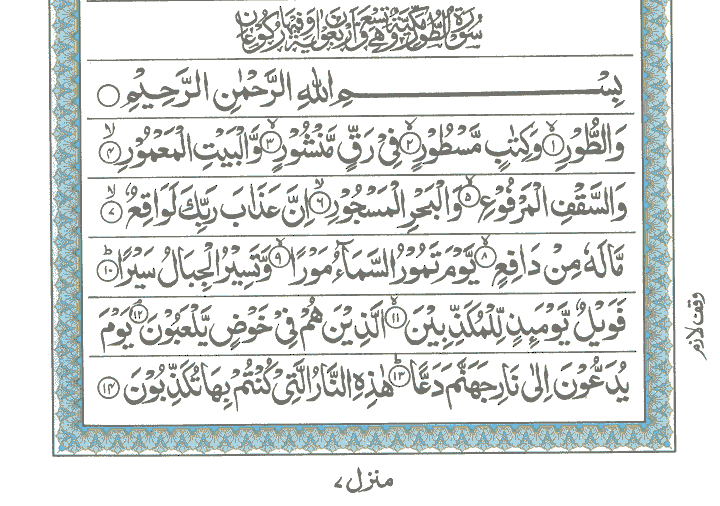 سُوْرَةُ الطُّوْرِ مَكِّيَّةٌ وَّهِيَ تِسْعٌ وَّاَرْبَعُوْنَ اٰيَةً وَّفِيْهَا رُكُوْعَانِ
بِسْــــــــــــمِ اللهِ الرَّحْمٰنِ الرَّحِيْمِ
وَالطُّوْرِ ۙ﴿۱﴾ وَكِتٰبٍ مَّسْطُوْرٍ ۙ﴿۲﴾ فِیْ رَقٍّ مَّنْشُوْرٍ ۙ﴿۳﴾ وَّالْبَيْتِ الْمَعْمُوْرِ ۙ﴿۴﴾
وَالسَّقْفِ الْمَرْفُوْعِ ۙ﴿۵﴾ وَالْبَحْرِ الْمَسْجُوْرِ ۙ﴿۶﴾ اِنَّ عَذَابَ رَبِّكَ لَوَاقِعٌ ۙ﴿۷﴾
مَّالَهٗ مِنْ دَافِعٍ ۙ﴿۸﴾ يَّوْمَ تَمُوْرُ السَّمَآءُ مَوْرًا ۙ﴿۹﴾ وَّتَسِيْرُ الْجِبَالُ سَيْرًا ؕ﴿۱۰﴾
فَوَيْلٌ يَّوْمَئِذٍ لِّلْمُكَذِّبِيْنَ ۙ﴿۱۱﴾ الَّذِيْنَ هُمْ فِیْ خَوْضٍ يَّلْعَبُوْنَ ۘ﴿۱۲﴾ يَوْمَ
يُدَعُّوْنَ اِلٰی نَارِ جَهَنَّمَ دَعًّا ؕ﴿۱۳﴾ هٰذِهِ النَّارُ الَّتِیْ كُنْتُمْ بِهَا تُكَذِّبُوْنَ ﴿۱۴﴾
وقف لازم
منزل ۷